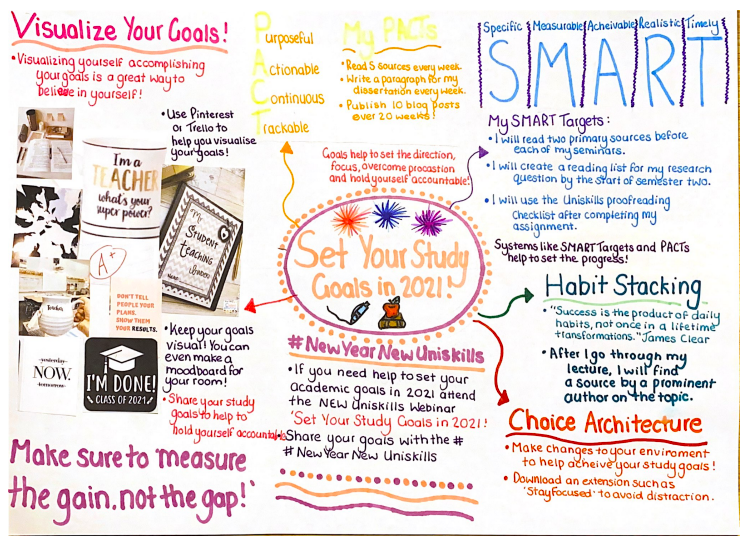 Visualize Your Goals!
• Visualizing yourself accomplishing
your goals is a great way to
believe in yourself!
• Use Pinterest
or Trello to
help you visualise
your goals!
I'm a
TEACHER
what's your
super power?
My
STUDENT
teaching
A+
Teacher
DON'T TELL
PEOPLE YOUR
PLANS.
SHOW THEM
YOUR RESULTS.
yesterday
NOW.
tomorrow
I'M DONE!
CLASS OF 2021
• Keep your goals
visual! You can
even make a
moodboard for
your room!
• Share your study
goals to help to
hold yourself accountable
Make sure to 'measure
the gain. not the gap!'
PACT
Purposeful
Actionable
Continuous
Trackable
My PACTs
• Read 5 sources every week.
• Write a paragraph for my
dissertation every week.
• Publish 10 blog posts
over 20 weeks!
Goals help to set the direction,
focus, overcome procastion
and hold yourself accountable!
Set Your Study
Goals in 2021!
#New Year New Uniskills
• If you need help to set your
academic goals in 2021 attend
the NEW Uniskills Webinar
'Set Your Study Goals in 2021!
• Share your goals with the #
#New Year New Uniskills
Specific Measurable Acheivable Realistic Timely
SMART
My SMART Targets:
• I will read two primary sources before
each of my seminars.
• I will create a reading list for my research
question by the start of semester two.
• I will use the Uniskills proofreading
Checklist after completing my
assignment.
Systems like SMART Targets and PACTs
help to set the progress!
Habit Stacking
• "Success is the product of daily
habits, not once in a lifetime
transformations." James Clear
• After I go through my
lecture, I will find
a source by a prominent
author on the topic.
Choice Architecture
• Make changes to your enviroment
to help acheive your study goals!
• Download an extension such as
'StayFocused' to avoid distraction.